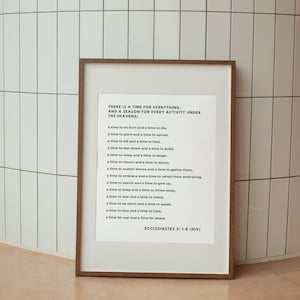 THERE IS A TIME FOR EVERYTHING,
AND A SEASON FOR EVERY ACTIVITY UNDER
THE HEAVENS:
a time to be born and a time to die,
a time to plant and a time to uproot,
a time to kill and a time to heal,
a time to tear down and a time to build,
a time to weep and a time to laugh,
a time to mourn and a time to dance,
a time to scatter stones and a time to gather them,
a time to embrace and a time to refrain from embracing,
a time to search and a time to give up,
a time to keep and a time to throw away,
a time to tear and a time to mend,
a time to be silent and a time to speak,
a time to love and a time to hate,
a time for war and a time for peace.
ECCLESIASTES 3: 1-8 (NIV)